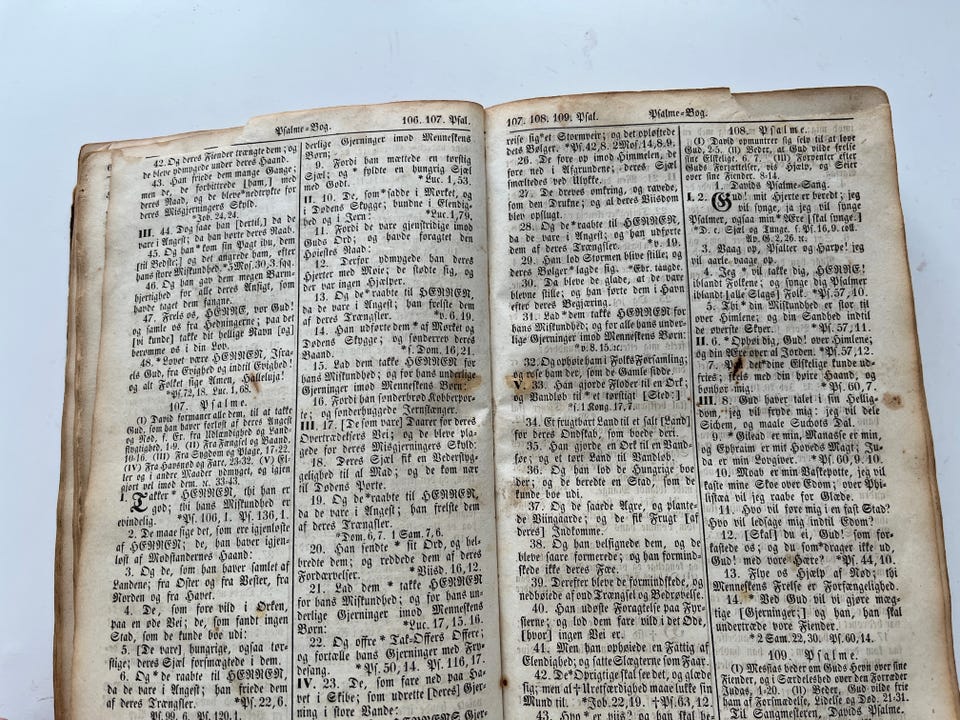 Psalme-Bog. 106. 107. Psal.
42. Og deres Fiender trængte dem; og
de bleve ydmygede under deres Haand.
43. Han friede dem mange Gange;
men de, de forbittrede [ham,] med
deres Raad, og de bleve *nedtrykte for
deres Misgjerningers Skyld.
*Job. 24, 24.
III. 44. Dog saae han [dertil,] da de
vare i Angest; da han hørte deres Raab.
45. Og han *kom sin Pagt ihu, dem
[til Bedste;] og det angrede ham, efter
hans store Miskundhed. *5 Mos. 30, 3. fqg.
46. Og han gav dem megen Barm-
hjertighed for alle deres Ansigt, som
havde taget dem fangne.
47. Frels os, HERRE, vor Gud!
og samle os fra Hedningerne; paa det
[vi kunde] takke dit hellige Navn [og]
berømme os i din Lov.
48. *Lovet være HERREN, Isra-
els Gud, fra Evighed og indtil Evighed!
og alt Folket sige Amen, Halleluja!
*Ps. 72, 18. Luc. 1, 68.
107. Psalme.
(I) David formaner alle dem, til at takke
Gud, som han haver forløst af deres Angest
og Nød, f. Er. fra Udlændighed og Land-
flygtighed, 1-9. (II) Fra Fængsel og Baand,
10-16. (III) Fra Sygdom og Plage, 17-22.
(IV) Fra Havsnød og Fare, 23-32. (V) El-
ler og i andre Maader ydmyget, og igjen
gjort vel imod dem. rc. 33-43.
I. Takker *HERREN, thi han er
god; thi hans Miskundhed er
evindelig. *Ps. 106, 1. Ps. 136, 1.
2. De maae sige det, som ere igjenløste
af HERREN; de, han haver igjen-
løst af Modstandernes Haand:
3. Og de, som han haver samlet af
Landene; fra Øster og fra Vester, fra
Norden og fra Havet.
4. De, som fore vild i Ørken,
paa en øde Vei; de, som fandt ingen
Stad, som de kunde boe udi:
5. [De vare] hungrige, ogsaa tør-
stige; deres Sjæl forsmægtede i dem.
6. Og *de raabte til HERREN,
da de vare i Angest; han friede dem
af deres Trængsler. *Ps. 22, 6.
Ps. 99, 6. Ps. 120, 1.
derlige Gjerninger imod Menneskens
Børn;
9. Fordi han mættede en tørstig
Sjæl; og *fyldte en hungrig Sjæl
med Godt. *Luc. 1, 53.
II. 10. De, som *sadde i Mørket, og
i Dødens Skygge; bundne i Elendig-
hed og i Jern: *Luc. 1, 79.
11. Fordi de vare gjenstridige imod
Guds Ord, og havde foragtet den
Høiestes Raad:
12. Derfor ydmygede han deres
Hjerter med Møie; de stødte sig, og
der var ingen Hjælper.
13. Og de *raabte til HERREN,
da de vare i Angest; han frelste dem
af deres Trængsler. *v. 6. 19.
14. Han udførte dem *af Mørket og
Dødens Skygge; og sønderrev deres
Baand. *f. Dom. 16, 21.
15. Lad dem takke HERREN for
hans Miskundhed; og for hans underlige
Gjerninger imod Menneskens Børn:
16. Fordi han sønderbrød Kobberpor-
te; og sønderhuggede Jernstænger.
III. 17. [De som vare] Daarer for deres
Overtrædelsers Vei; og de bleve pla-
gede for deres Misgjerningers Skyld:
18. Deres Sjæl fik en Vederstyg-
gelighed til al Mad; og de kom nær
til Dødens Porte.
19. Og de *raabte til HERREN,
da de vare i Angest; han frelste dem
af deres Trængsler.
*Dom. 6, 7. 1 Sam. 7, 6.
20. Han sendte *sit Ord, og hel-
bredte dem; og reddede dem af deres
Fordærvelser. *Viisd. 16, 12.
21. Lad dem *takke HERREN
for hans Miskundhed; og for hans un-
derlige Gjerninger imod Menneskens
Børn: *Luc. 17, 15. 16.
22. Og offre *Tak-Offers Offere;
og fortælle hans Gjerninger med Fry-
desang. *Ps. 50, 14. Ps. 116, 17.
IV. 23. De, som fare ned paa Ha-
vet i Skibe; som udrette [deres] Gjer-
ning i store Vande:
107. 108. 109. Psal. Psalme-Bog.
reise sig *et Stormveir; og det opløftede
dets Bølger. *Ps. 42, 8. 2 Mos. 14, 8. 9.
26. De fore op imod Himmelen, de
fore ned i Afgrundene; deres Sjæl
smæltedes ved Ulykke.
27. De dreves omkring, og ravede,
som den Drukne; og al deres Viisdom
blev opslugt.
28. Og de *raabte til HERREN,
da de vare i Angest; og han udførte
dem af deres Trængsler. *v. 19.
29. Han lod Stormen blive stille; og
deres Bølger *lagde sig. *Ebr. taugde.
30. Da bleve de glade, at de vare
blevne stille; og han førte dem i Havn
efter deres Begjæring.
31. Lad *dem takke HERREN for
hans Miskundhed; og for alle hans under-
lige Gjerninger imod Menneskens Børn:
*v. 8. 15. rc.
32. Og ophøie ham i Folks Forsamling;
og rose ham der, som de Gamle sidde.
V. 33. Han gjorde Floder til en Ørk;
og Vandløb til *et tørstigt [Sted:]
*f. 1 Kong. 17, 7.
34. Et frugtbart Land til et salt [Land]
for deres Ondskab, som boede deri.
35. Han gjorde en Ørk til en Vand-
sø; og et tørt Land til Vandløb.
36. Og han lod de Hungrige boe
der; og de beredte en Stad, som de
kunde boe udi.
37. Og de saaede Agre, og plante-
de Viingaarde; og de fik Frugt [af
deres] Indkomme.
38. Og han velsignede dem, og de
bleve saare formerede; og han formind-
skede ikke deres Fæe.
39. Derefter bleve de formindskede, og
nedbøiede af ond Trængsel og Bedrøvelse.
40. Han udøste Foragtelse paa Fyr-
sterne; og lod dem fare vild i det Øde,
[hvor] ingen Vei er.
41. Men han ophøiede en Fattig af
Elendighed; og satte Slægterne som Faar.
42. De *Oprigtige skal see det, og glæde
sig; men al †Uretfærdighed maae lukke sin
Mund til. *Job. 22, 19. †Ps. 63, 12.
43. Hvo *er viis? og han skal be-
108. Psalme.
(I) David opmuntrer sig selv til at love
Gud, 2-5. (II) Beder, at Gud vilde frelse
sine Elskelige. 6. 7. (III) Forventer efter
Guds Forjættelser, vis Hjælp, og Seier
over sine Fiender. 8-14.
1. Davids Psalme-Sang.
I. 2. Gud! mit Hjerte er beredt; jeg
vil synge, ja jeg vil synge
Psalmer, ogsaa min *Ære [skal synge.]
*D. e. Sjæl og Tunge. f. Ps. 16, 9. coll.
Ap. G. 2, 26. rc.
3. Vaag op, Psalter og Harpe! jeg
vil aarle vaage op.
4. Jeg *vil takke dig, HERRE!
iblandt Folkene; og synge dig Psalmer
iblandt [alle Slags] Folk. *Ps. 57, 10.
5. Thi *din Miskundhed er stor til
over Himlene; og din Sandhed indtil
de øverste Skyer. *Ps. 57, 11.
II. 6. *Ophøi dig, Gud! over Himlene;
og din Ære over al Jorden. *Ps. 57, 12.
7. Paa det *dine Elskelige kunde ud-
fries; frels med din høire Haand, og
bønhør mig! *Ps. 60, 7.
III. 8. Gud haver talet i sin Hellig-
dom, jeg vil fryde mig: jeg vil dele
Sichem, og maale Suchots Dal.
9. *Gilead er min, Manasse er min,
og Ephraim er mit Hoveds Magt; Ju-
da er min Lovgiver. *Ps. 60, 9. 10.
10. Moab er min Vaskepotte, jeg vil
kaste mine Skoe over Edom; over Phi-
listæa vil jeg raabe for Glæde.
11. Hvo vil føre mig i en fast Stad?
Hvo vil ledsage mig indtil Edom?
12. [Skal] du ei, Gud! som for-
kastede os; og du som *drager ikke ud,
Gud! med vore Hære? *Ps. 44, 10.
13. Flye os Hjælp af Nød; thi
Menneskens Frelse er Forfængelighed.
14. *Ved Gud vil vi gjøre mæg-
tige [Gjerninger;] og han, han skal
undertræde vore Fiender.
*2 Sam. 22, 30. Ps. 60, 14.
109. Psalme.
(I) Messias beder om Guds Hevn over sine
Fiender, og i Særdeleshed over den Forræder
Judas, 1-20. (II) Beder, Gud vilde frie
ham af Forfølgelse, Lidelse og Død, 21-31.
Til Sangmesteren, Davids Psalme.